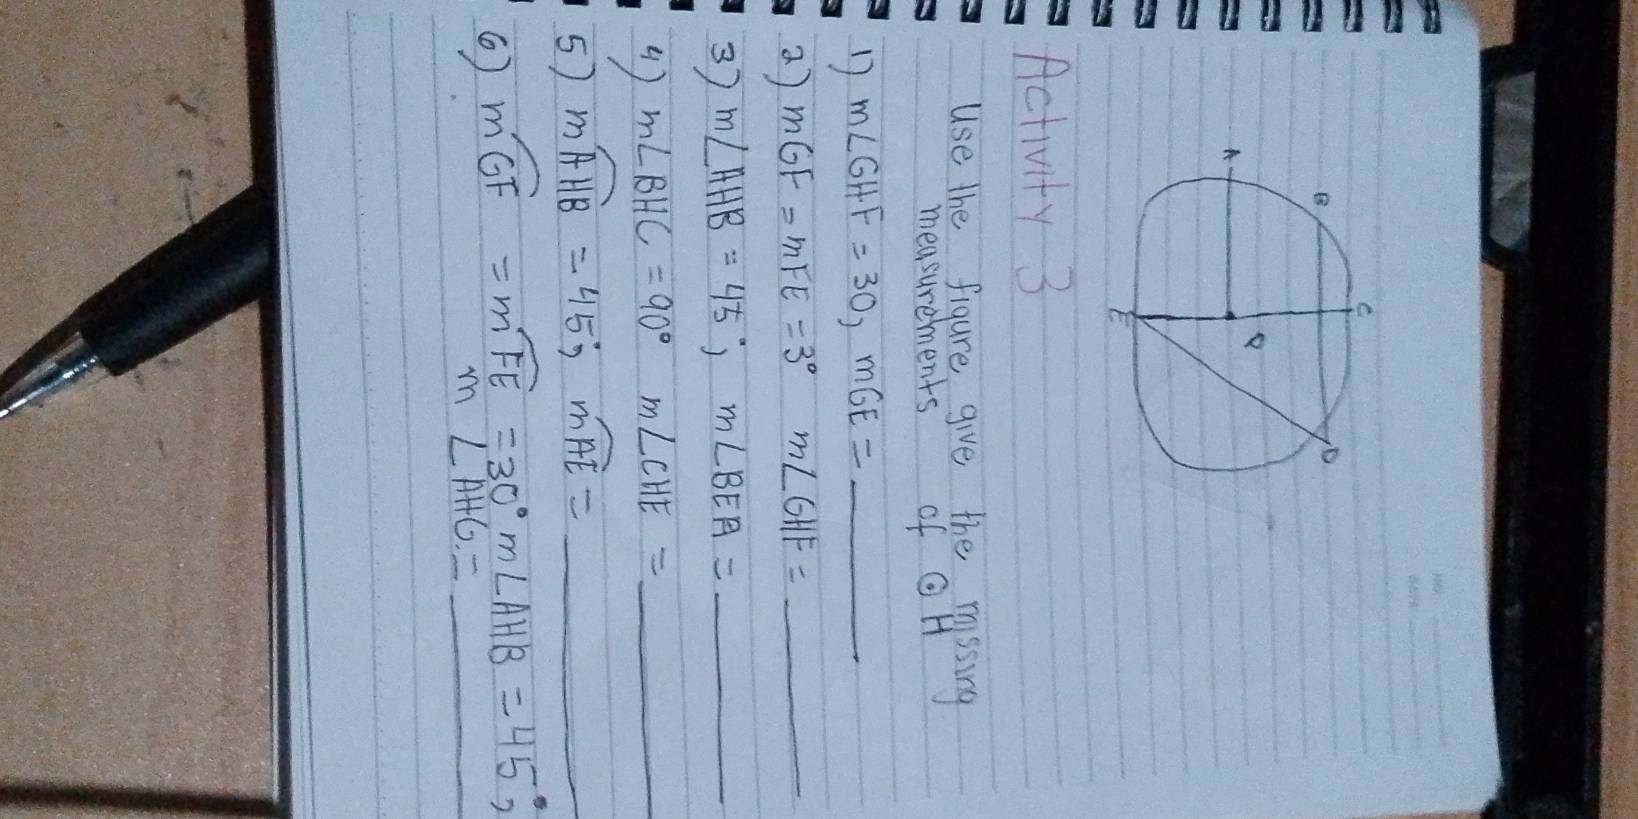 A
B
C
Q
D
E
Activity 3
Use the figure, give the missing
measurements of ⊙ H
1) m∠GHF = 30, mGE = ________
2) mGF = mFE = 3° m∠GHF = ________
3) m∠AHB = 45°, m∠BEA = ________
4) m∠BHC = 90° m∠CHE = ________
5) mAHB = 45°, mAE = ________
6) mGF = mFE = 30° m∠AHB = 45°,
m ∠AHG = ________